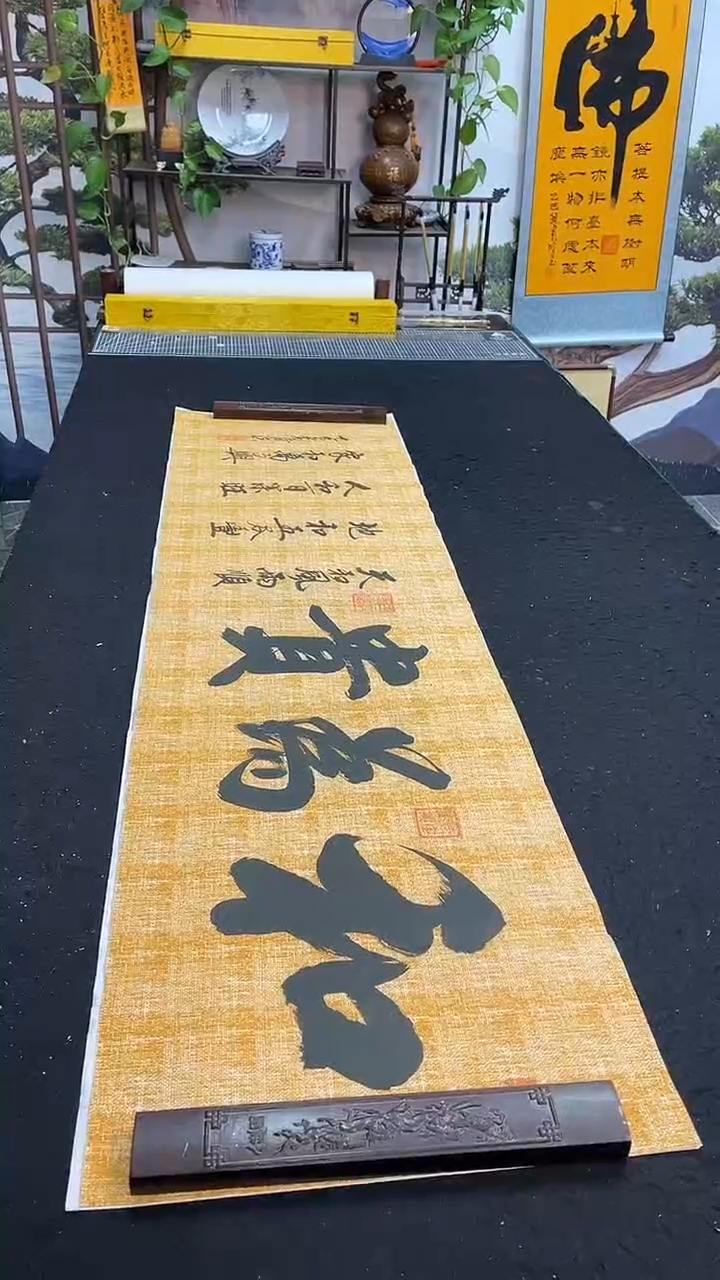 佛
菩提本無樹明
鏡亦非臺本來
無一物何處惹
塵埃
和為貴
天和風雨順
地和五谷豐
人和百業旺
家和萬事興